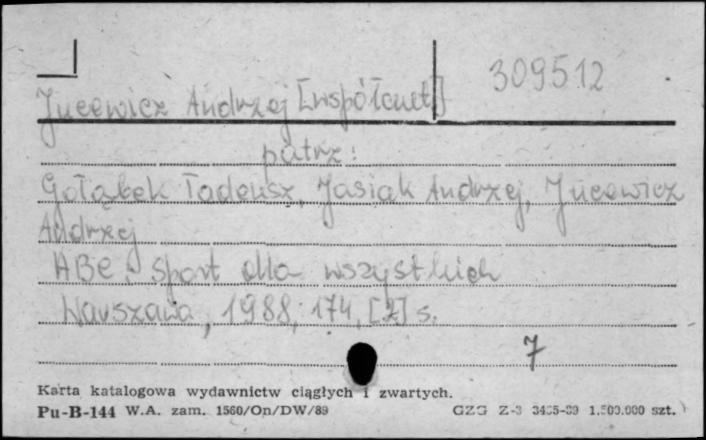 309512
Jucewicz Andrzej [współaut.]
patrz:
Gołąbek Tadeusz, Jasiak Andrzej, Jucewicz
Andrzej
ABC: Sport dla wszystkich
Warszawa, 1988, 174, [2] s.
7
Karta katalogowa wydawnictw ciągłych i zwartych.
Pu-B-144 W.A. zam. 1560/On/DW/89 GZG Z-3 3435-89 1.500.000 szt.